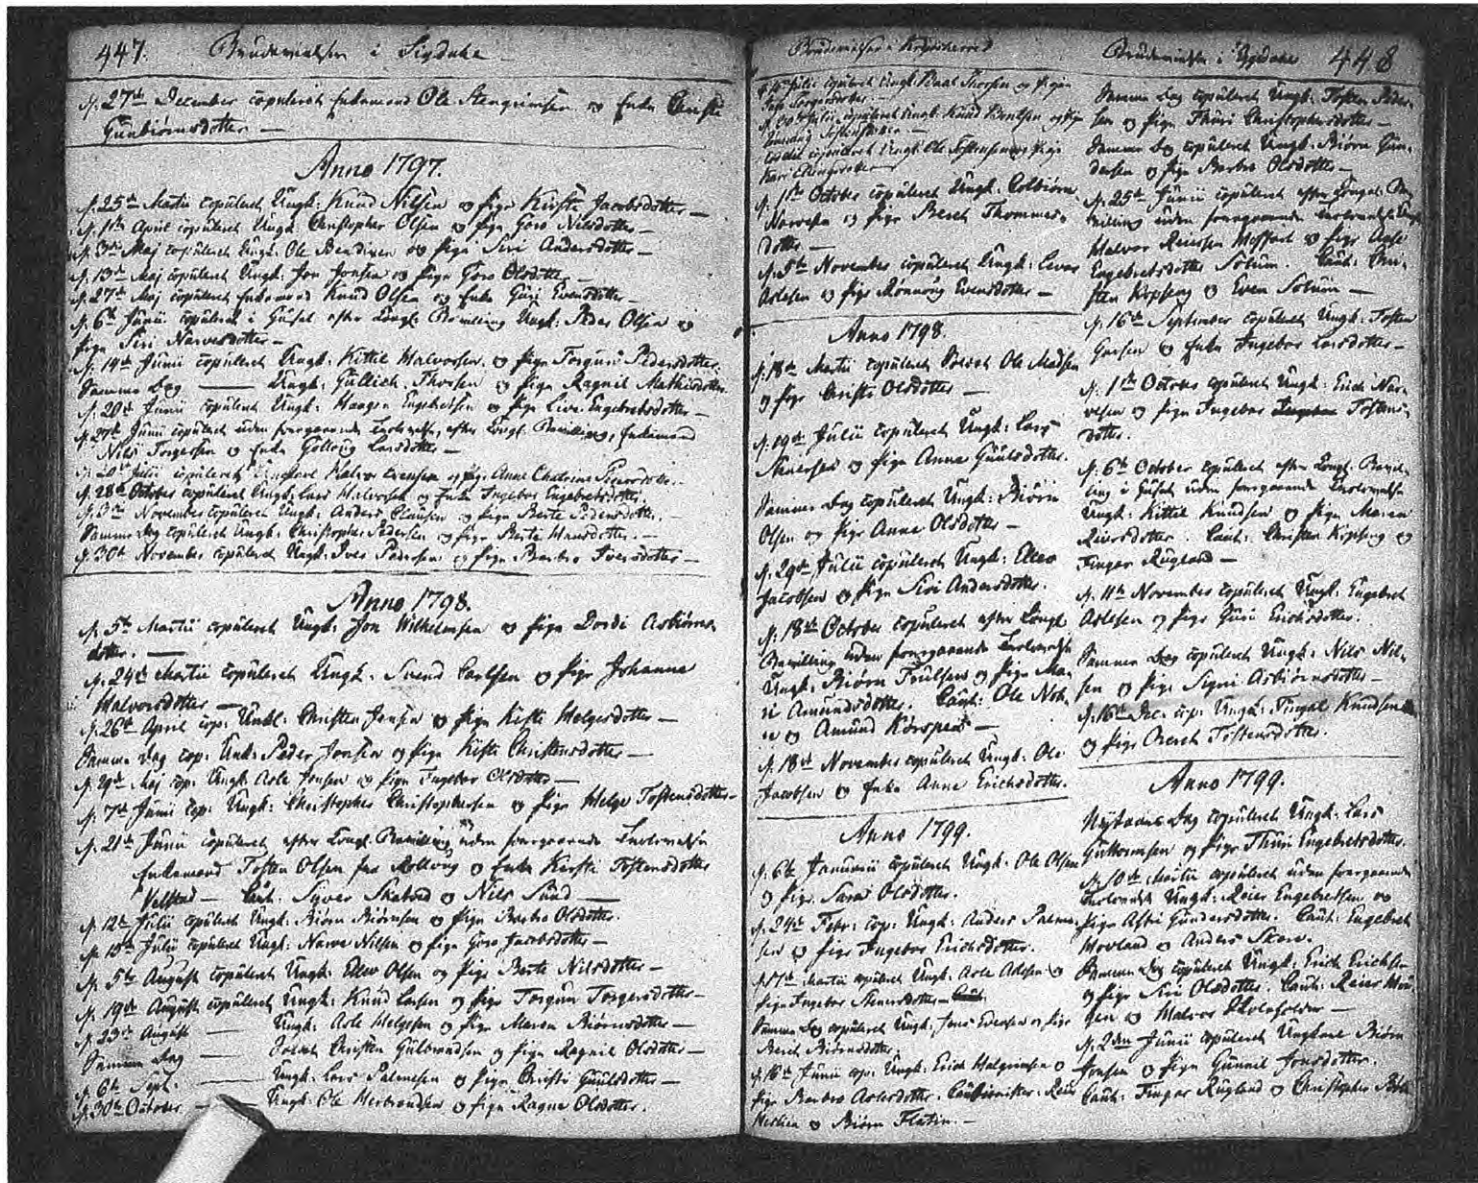 447. Brudevielser i Sigdahl
d. 27de December copuleret Enkemand Ole Stengrimsen og Enke Christi
Gunbiørnsdotter —
Anno 1797.
d. 25de Martii copuleret Ungk: Knud Nilsen og Pige Kirsti Jacobsdotter —
d. 1te April copuleret Ungk: Christopher Olsen og Pige Goro Nilsdotter —
d. 3de Maj copuleret Ungk: Ole Bendixen og Pige Siri Andersdotter —
d. 13de Maj copuleret Ungk: Jon Jonsen og Pige Goro Olsdotter —
d. 27de Maj copuleret Enkemand Knud Olsen og Enke Guri Evensdotter —
d. 6te Junii copuleret i Huset efter Kongl: Bevilling Ungk: Peder Olsen og
Pige Siri Narvesdotter —
d. 14de Junii copuleret Ungk: Kittil Halvorsen og Pige Torgun Pedersdotter.
Samme Dag — Ungk: Gullich Thorsen og Pige Ragnil Mathisdotter
d. 20de Junii copuleret Ungk: Haagen Engebretsen og Pige Live Engebretsdotter —
Junii copuleret uden foregaaende Trolovelse, efter Kongl: Bevilling, Enkemand
Nils Torgersen og Enke Gollaug Larsdotter —
Julii copuleret Ungkarl Halvor Evensen og Pige Anne Chatrine
d. 28de October copuleret Ungk: Lars Halvorsen og Enke Ingebor Engebretsdotter.
d. 3de November copuleret Ungk: Anders Clausen og Pige Berte Pedersdotter. —
Samme Dag copuleret Ungk: Christopher Pedersen og Pige Berte Hansdotter. —
d. 30te November copuleret Ungk: Iver Pedersen og Pige Barbro Iversdotter —
Anno 1798.
d. 5te Martii copuleret Ungk: Jon Wilhelmsen og Pige Dordi Asbiørns
dotter. —
d. 24de Martii copuleret Ungk: Svend Carlsen og Pige Johanna
Halvorsdotter —
d. 26de April cop: Ungk: Christen Jensen og Pige Kisti Helgesdotter —
Samme Dag cop: Ungk: Peder Jonsen og Pige Kisti Christensdotter —
d. 29de Maj cop: Ungk: Asle Jonsen og Pige Ingebor Olsdotter —
d. 7de Junii cop: Ungk: Christopher Christophersen og Pige Helge Tostensdotter —
d. 21de Junii copuleret efter Kongl: Bevilling uden foregaaende Trolovelse
Enkemand Tosten Olsen fra og Enke Kirsti Tostensdotter
— Caut: Syver og Nils —
d. 12te Julii copuleret Ungk: Biørn Biørnsen og Pige Barbro Olsdotter.
d. Julii copuleret Ungk: Narve Nilsen og Pige Goro Jacobsdotter —
d. 5te August copuleret Ungk: Ellev Olsen og Pige Berte Nilsdotter —
d. 19de August copuleret Ungk: Knud Larsen og Pige Torgun Torgersdotter —
d. 23de August — Ungk: Asle Helgesen og Pige Maren Biørnsdotter —
Samme Dag — Christen Gulbrandsen og Pige Ragnil Olsdotter —
d. 6te Sept. — Ungk: Lars Palmesen og Pige Christi Guulsdotter —
d. 30te October — Ungk: Ole Herbrandsen og Pige Ragne Olsdotter.
Brudevielser i Krydsherred
Julii copuleret Ungk: og Pige
copuleret Ungk: Knud Bentsen og Pige
copuleret Ungk: Ole Tostensen og Pige
d. 1te October copuleret Ungk: Colbiørn
Narvesen og Pige Beret Thommes-
dotter —
d. 5te November copuleret Ungk:
Aslesen og Pige Rønnoug Evensdotter —
Anno 1798.
d. 18de Martii copuleret Ole Madsen
og Pige Christi Olsdotter —
d. 19de Julii copuleret Ungk: Lars
og Pige Anna Guulsdotter.
Samme Dag copuleret Ungk: Biørn
Olsen og Pige Anna Olsdotter —
d. 29de Julii copuleret Ungk: Ellev
Jacobsen og Pige Siri Andersdotter —
d. 18de October copuleret efter Kongl:
Bevilling uden foregaaende Trolovelse
Ungk: Biørn Trulsen og Pige Ma-
ri Amundsdotter. Caut: Ole
og Amund —
d. 18de November copuleret Ungk: Ole
Jacobsen og Enke Anna Erichsdotter.
Anno 1799.
d. 6te Januarii copuleret Ungk: Ole Olsen
og Pige Sara Olsdotter.
d. 24de Febr: cop: Ungk: Anders Palme-
sen og Pige Ingebor Erichsdotter.
d. 17de Martii copuleret Ungk: Asle Aslesen og
Pige Ingebor —
Samme Dag copuleret Ungk: Jens Evensen og Pige
Beret Biørnsdotter.
d. 16de Junii cop: Ungk: Erich Halgrimsen og
Pige Barbro Aslesdotter. Cautionister:
og Biørn Flatin. —
Brudevielser i Sigdahl 448
Samme Dag copuleret Ungk: Tosten Peder-
sen og Pige Thuri Christophersdotter —
Samme Dag copuleret Ungk: Biørn Gun-
dersen og Pige Barbro Olsdotter —
d. 25de Junii copuleret efter Kongel: Be-
villing uden foregaaende Trolovelse Ungk:
Halvor og Pige
Engebretsdotter Solum. Caut: Chri-
sten Kopseng og Even Solum —
d. 16de September copuleret Ungk: Tosten
og Enke Ingebor Larsdotter —
d. 1te October copuleret Ungk: Erich Nar-
vesen og Pige Ingebor Tostens-
dotter.
d. 6te October copuleret efter Kongl: Bevil-
ling i Huset uden foregaaende Trolovelse
Ungk: Kittil Knudsen og Pige Maren
Reiersdotter. Caut: Christen Kopseng og
Fingar Rugland —
d. 11te November copuleret Ungk: Engebret
Aslesen og Pige Guri Erichsdotter.
Samme Dag copuleret Ungk: Nils Nil-
sen og Pige Sigri Asbiørnsdotter —
d. 16de Dec: cop: Ungk: Fingal Knudsen
og Pige Beret Tostensdotter.
Anno 1799.
Nytaars Dag copuleret Ungk: Lars
Guttormsen og Pige Thuri Engebretsdotter.
d. 10de Martii copuleret uden foregaaende
Trolovelse Ungk: Reier Engebretsen og
Pige Astri Gundersdotter. Caut: Engebret
Hovland og Anders Skare.
Samme Dag copuleret Ungk: Erich Erichse
og Pige Siri Olsdotter. Caut: Reier
og Halvor
d. 2den Junii copuleret Ungkarl Biørn
Jonsen og Pige Gunnil Jonsdotter.
Caut: Fingar Rugland og Christopher